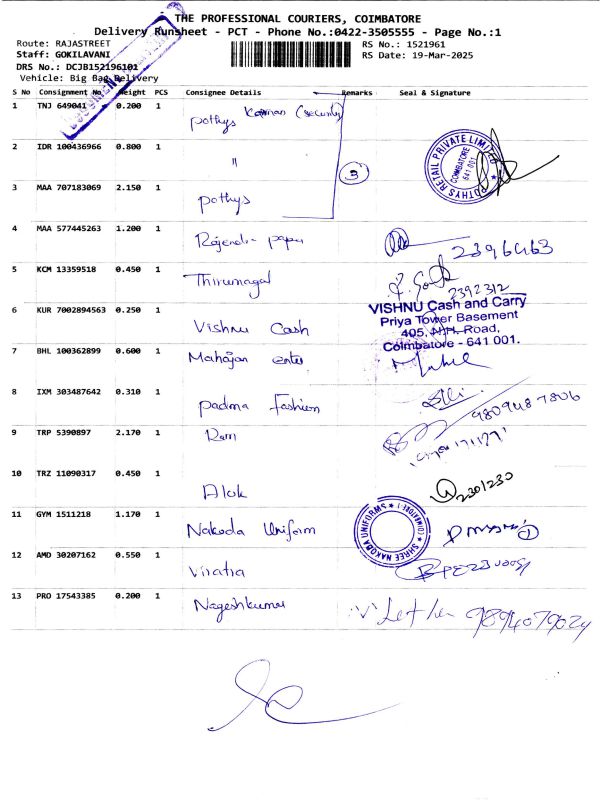 THE PROFESSIONAL COURIERS, COIMBATORE
Delivery Runsheet - PCT - Phone No.:0422-3505555 - Page No.:1
Route: RAJASTREET
RS No.: 1521961
Staff: GOKILAVANI
RS Date: 19-Mar-2025
DRS No.: DCJB152196101
Vehicle: Big Bag Delivery
S No Consignment No Weight PCS Consignee Details Remarks Seal & Signature
1 TNJ 649041 0.200 1 pothys Kannan (security)
2 IDR 100436966 0.800 1 " 3 POTHYS RETAIL PRIVATE LIMITED COIMBATORE 641 001
3 MAA 707183069 2.150 1 pothys
4 MAA 577445263 1.200 1 Rajendra paper 2396463
5 KCM 13359518 0.450 1 Thirumagal 2392312
6 KUR 7002894563 0.250 1 Vishnu Cash
VISHNU Cash and Carry
Priya Tower Basement
405, N.H. Road,
Coimbatore - 641 001.
7 BHL 100362899 0.600 1 Mahajan enter
8 IXM 303487642 0.310 1 padma Fashion 9809487806
9 TRP 5390897 2.170 1 Ram
10 TRZ 11090317 0.450 1 Alok 2301230
11 GYM 1511218 1.170 1 Nakoda Uniform SHREE NAKODA UNIFORMS
12 AMD 30207162 0.550 1
13 PRO 17543385 0.200 1 Nageshkumar 9894079024